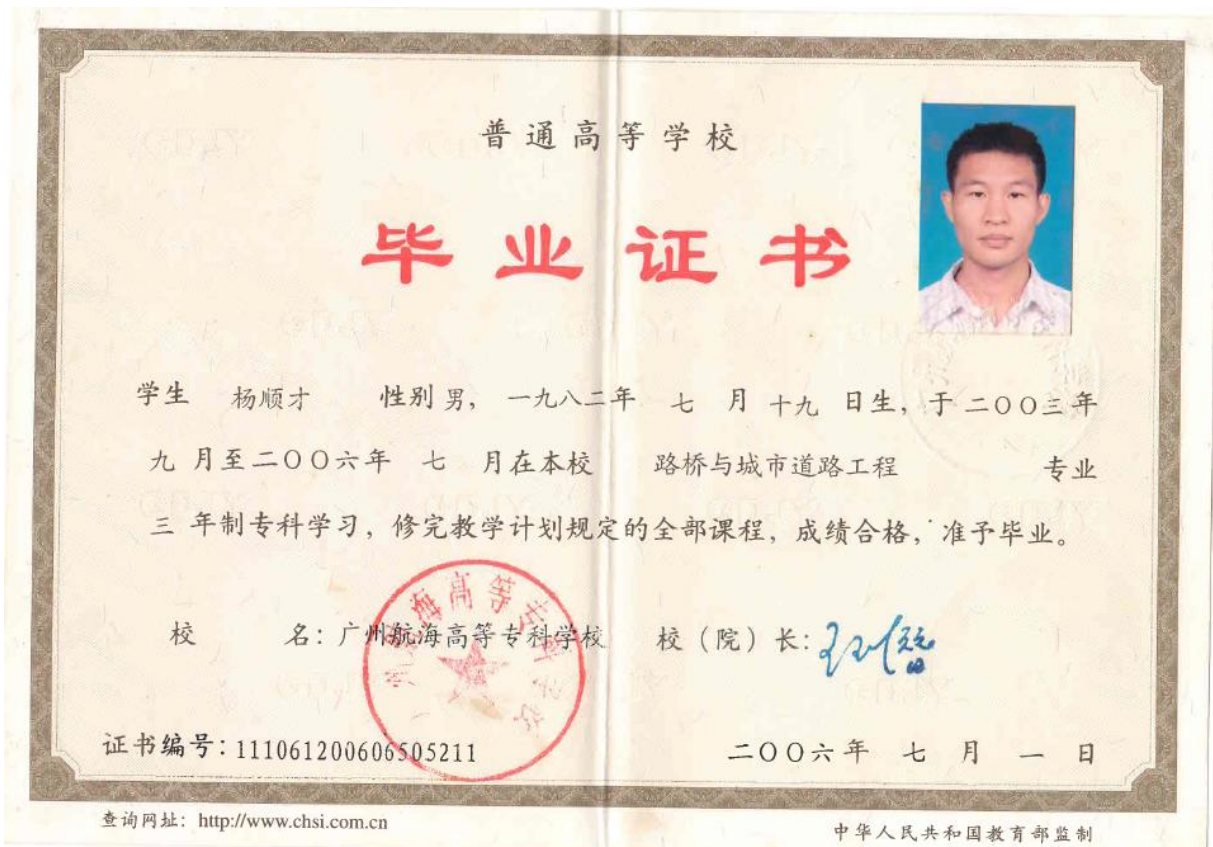 普通高等学校
毕业证书
学生 杨顺才 性别 男, 一九八二年 七 月 十九 日生, 于二〇〇三年
九 月至二〇〇六年 七 月在本校 路桥与城市道路工程 专业
三 年制专科学习, 修完教学计划规定的全部课程, 成绩合格, 准予毕业。
校 名: 广州航海高等专科学校 校 (院) 长:
证书编号: 111061200606505211 二〇〇六年 七 月 一 日
查询网址: http://www.chsi.com.cn 中华人民共和国教育部监制